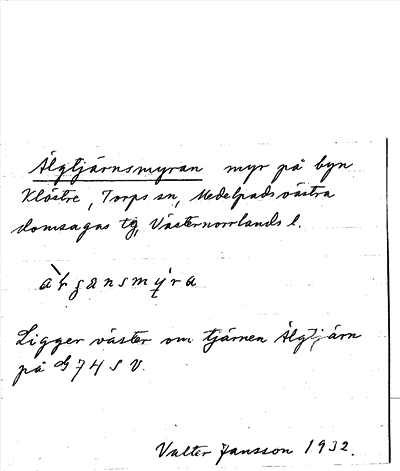 Älgtjärnsmyran myr på byn
Klöstre, Torps sn, Medelpads västra
domsagas tg, Västernorrlands l.
Ligger väster om tjärnen Älgtjärn
på G 74 S V.
Valter Jansson 1932.